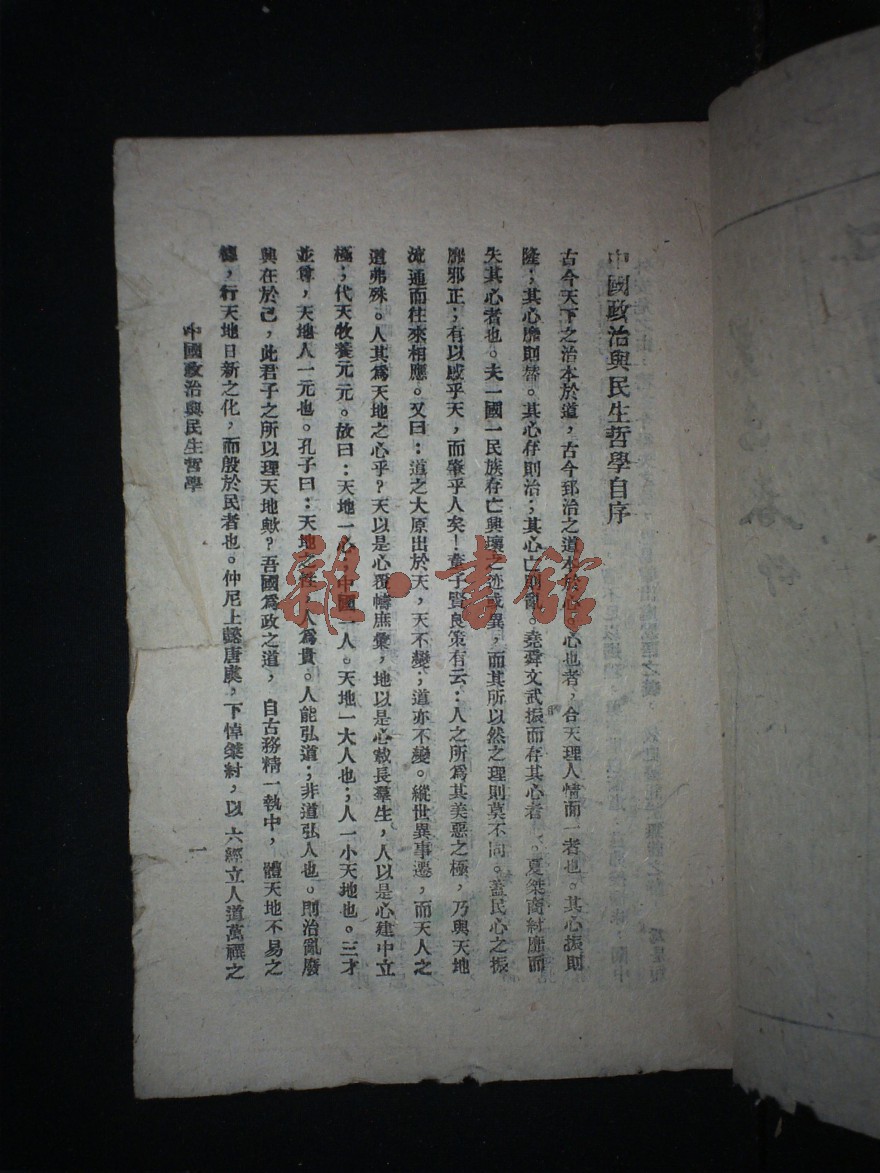 中國政治與民生哲學自序
古今天下之治本於道，古今郅治之道本於心。心也者，合天理人情而一者也。其心振則
隆；其心靡則替。其心存則治；其心亡則亂。堯舜文武振而存其心者 。夏桀商紂靡而
失其心者也。夫一國一民族存亡興壞之迹或異，而其所以然之理則莫不同。蓋民心之振
靡邪正；有以感乎天，而肇乎人矣！董子賢良策有云：人之所爲其美惡之極，乃與天地
流通而往來相應。又曰：道之大原出於天，天不變；道亦不變。縱世異事遷，而天人之
道弗殊。人其爲天地之心乎？天以是心覆幬庶彙，地以是心載長羣生，人以是心建中立
極；代天牧養元元。故曰：天地一心；中國一人。天地一大人也；人一小天地也。三才
並尊，天地人一元也。孔子曰：天地之性，人爲貴。人能弘道；非道弘人也。則治亂廢
興在於己，此君子之所以理天地歟？吾國爲政之道，自古務精一執中，體天地不易之
德，行天地日新之化，而殷於民者也。仲尼上懿唐虞，下悼桀紂，以六經立人道萬禩之
中國政治與民生哲學
一
雜·書館